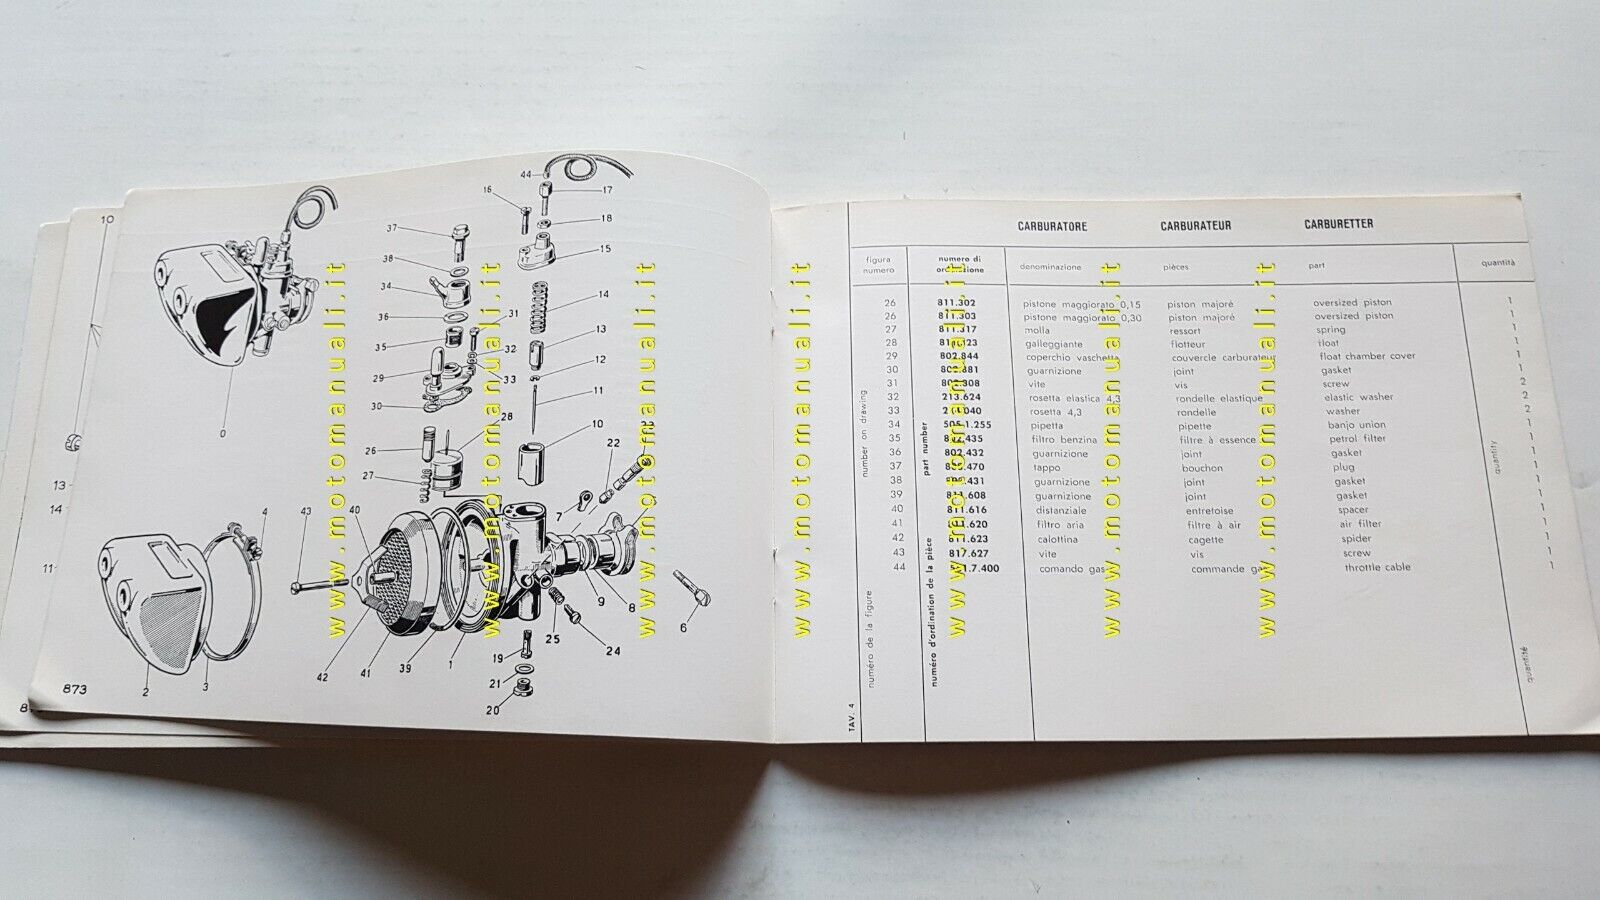 10
13
14
11
873
0
2
3
4
43
42
41
40
39
1
37
38
34
36
35
29
30
26
27
28
31
32
33
16
44
17
18
15
14
13
12
11
10
22
7
9
8
6
25
24
19
21
20
www.motomanuali.it
www.motomanuali.it
www.motomanuali.it
www.motomanuali.it
www.motomanuali.it
www.motomanuali.it
www.motomanuali.it
CARBURATORE CARBURATEUR CARBURETTER
figura numero
numero di ordinazione
denominazione pièces part quantità
26 811.302 pistone maggiorato 0,15 piston majoré oversized piston 1
26 811.303 pistone maggiorato 0,30 piston majoré oversized piston 1
27 811.317 molla ressort spring 1
28 galleggiante flotteur float 1
29 802.844 coperchio vaschetta couvercle carburateur float chamber cover 1
30 guarnizione joint gasket 1
31 vite vis screw 2
32 213.624 rosetta elastica 4,3 rondelle elastique elastic washer 2
33 rosetta 4,3 rondelle washer 2
34 pipetta pipette banjo union 1
35 filtro benzina filtre à essence petrol filter 1
36 802.432 guarnizione joint gasket 1
37 tappo bouchon plug 1
38 guarnizione joint gasket 1
39 811.608 guarnizione joint gasket 1
40 811.616 distanziale entretoise spacer 1
41 filtro aria filtre à air air filter 1
42 811.623 calottina cagette spider 1
43 817.627 vite vis screw 1
44 comando gas commande gaz throttle cable 1
number on drawing
numéro de la figure
part number
numéro d'ordination de la pièce
quantity
quantité
TAV. 4